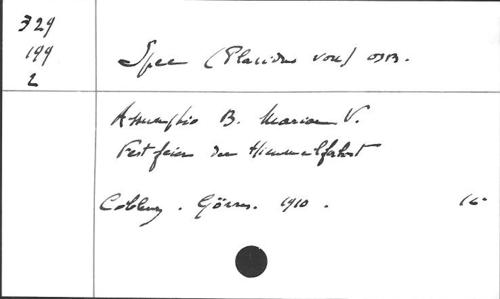 329
199
2
Spee (Placidus von) OSB.
Assumptio B. Mariae V.
Festfeier der Himmelfahrt
Coblenz. Görres. 1910.
16°